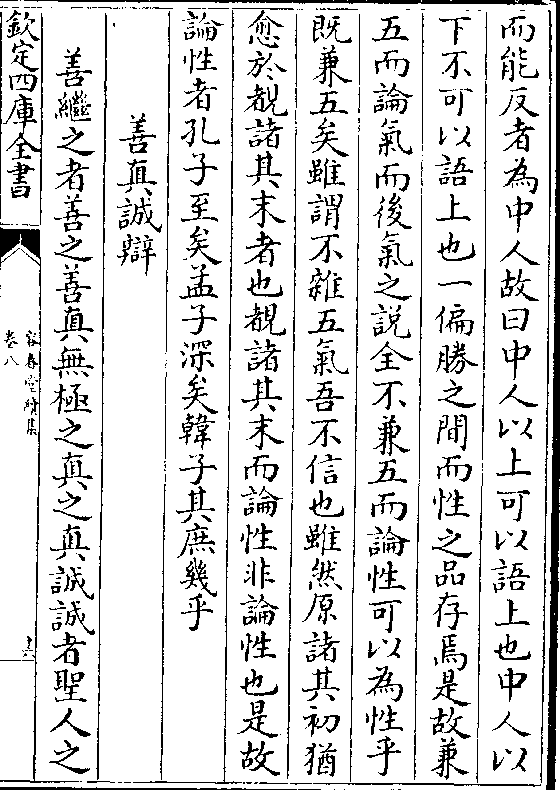 而能反者為中人故曰中人以上可以語上也中人以
下不可以語上也一偏勝之間而性之品存焉是故兼
五而論氣而後氣之説全不兼五而論性可以為性乎
既兼五矣雖謂不雜五氣吾不信也雖然原諸其初猶
愈於覩諸其末者也覩諸其末而論性非論性也是故
論性者孔子至矣孟子深矣韓子其庶幾乎
善真誠辯
善繼之者善之善真無極之真之真誠誠者聖人之
欽定四庫全書
容春堂續集
卷八
十六